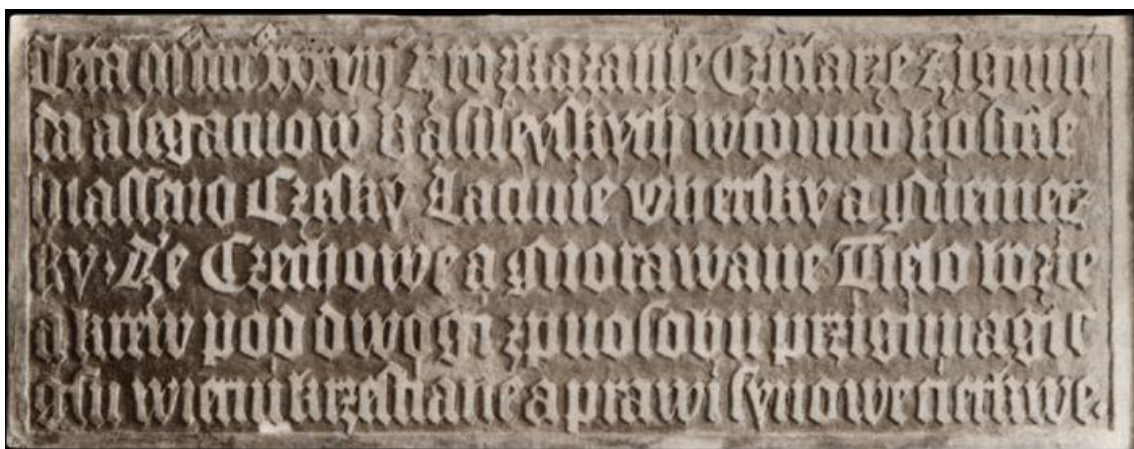 Leta mºiiiicxxxvii z rozkazanie Cziesarze Zigmu
da a legatuow Basileyskych w tomto kostele
ohlasseno Czesky Latinie Vhersky a Niemecz
ky · Ze Czechowe a Morawane Tielo bozie
a krew pod dwogi zpuosobu przigimagic
gsu wierni krzestiane a prawi synowe cierkwe